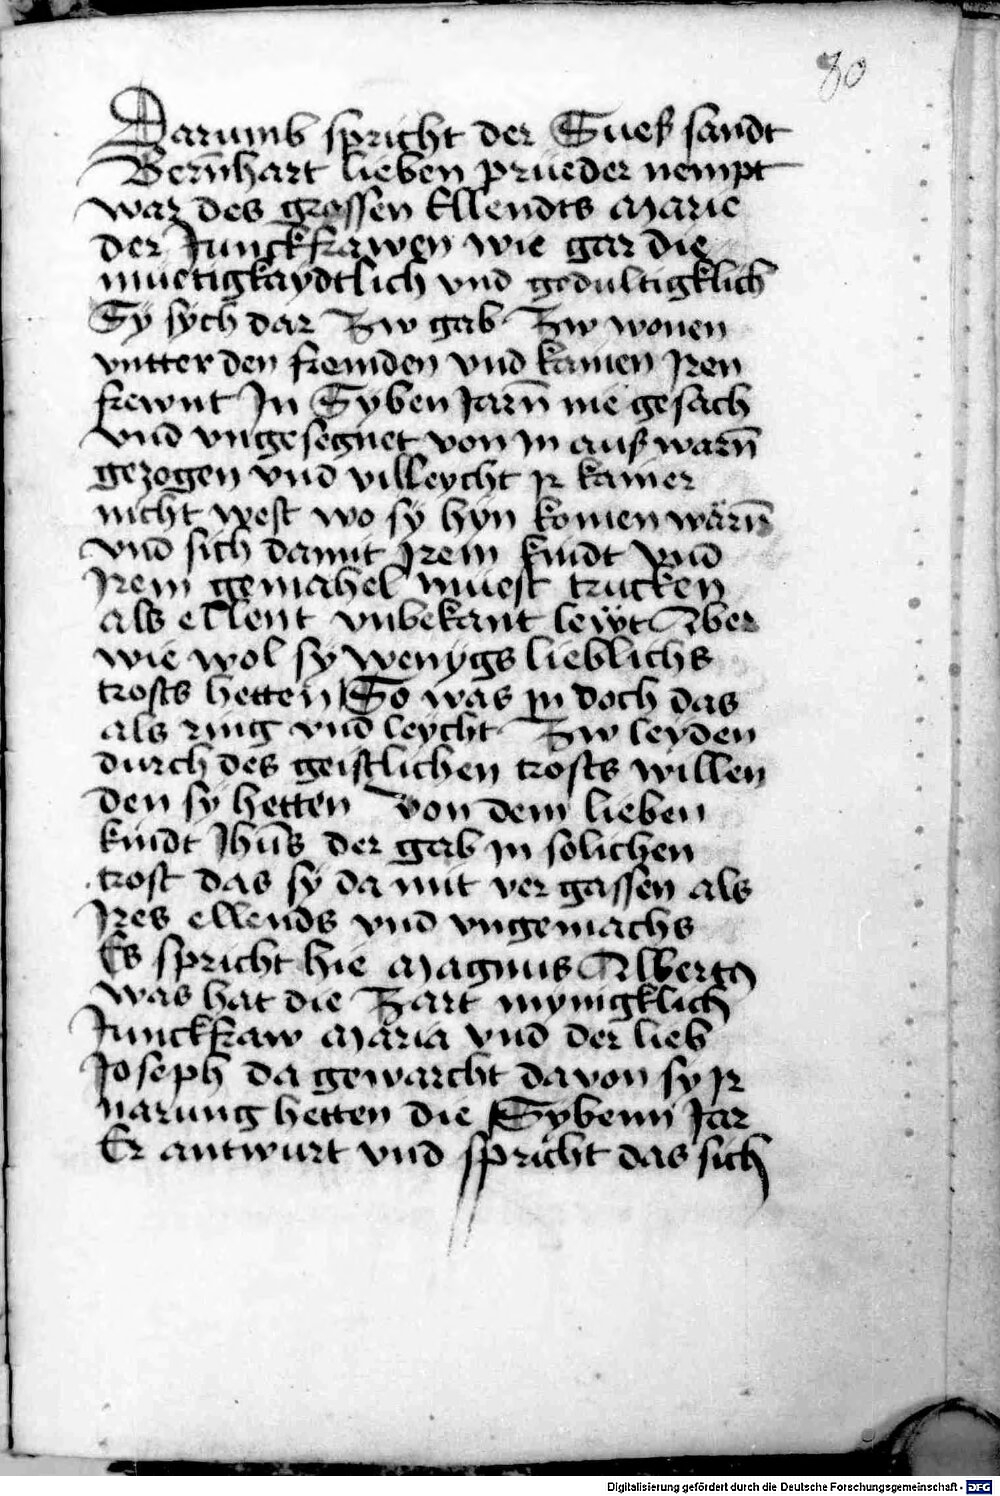 80
Darumb spricht der Sueß sandt
Bernhart lieben prüeder nempt
war des grossen Ellendts Marie
der Junckfrawen wie gar die
muetigkaydtlich vnd gedultigklich
Sÿ sych dar Zw gab Zw wonen
vntter den fremden vnd kainen Jren
frewnt Jn Syben Jarn̄ nie gesach
vnd vngesegnet von in auß warn̄
gezogen vnd villeycht ir kainer
nicht west wo sÿ hyn komen wärn̄
vnd sich damit Jrem kindt vnd
Jrem gemahel muest trucken
als ellent vnbekant lewt Aber
wie wol sÿ wenygs lieblichs
trosts hetten So was in doch das
als ring vnd leycht Zw leyden
durch des geistlichen trosts willen
den sÿ hetten von dem lieben
kindt Jhūs der gab in solichen
trost das sÿ da mit ver gassen als
Jres ellends vnd vngemachs
Es spricht hie Magnus Albertꝯ
was hat die Zart mynigklich
Junckfraw Maria vnd der lieb
Joseph da gewarcht davon sy ir
narung hetten die Sybenn Jar
Er antwurt vnd spricht das sich
Digitalisierung gefördert durch die Deutsche Forschungsgemeinschaft - DFG